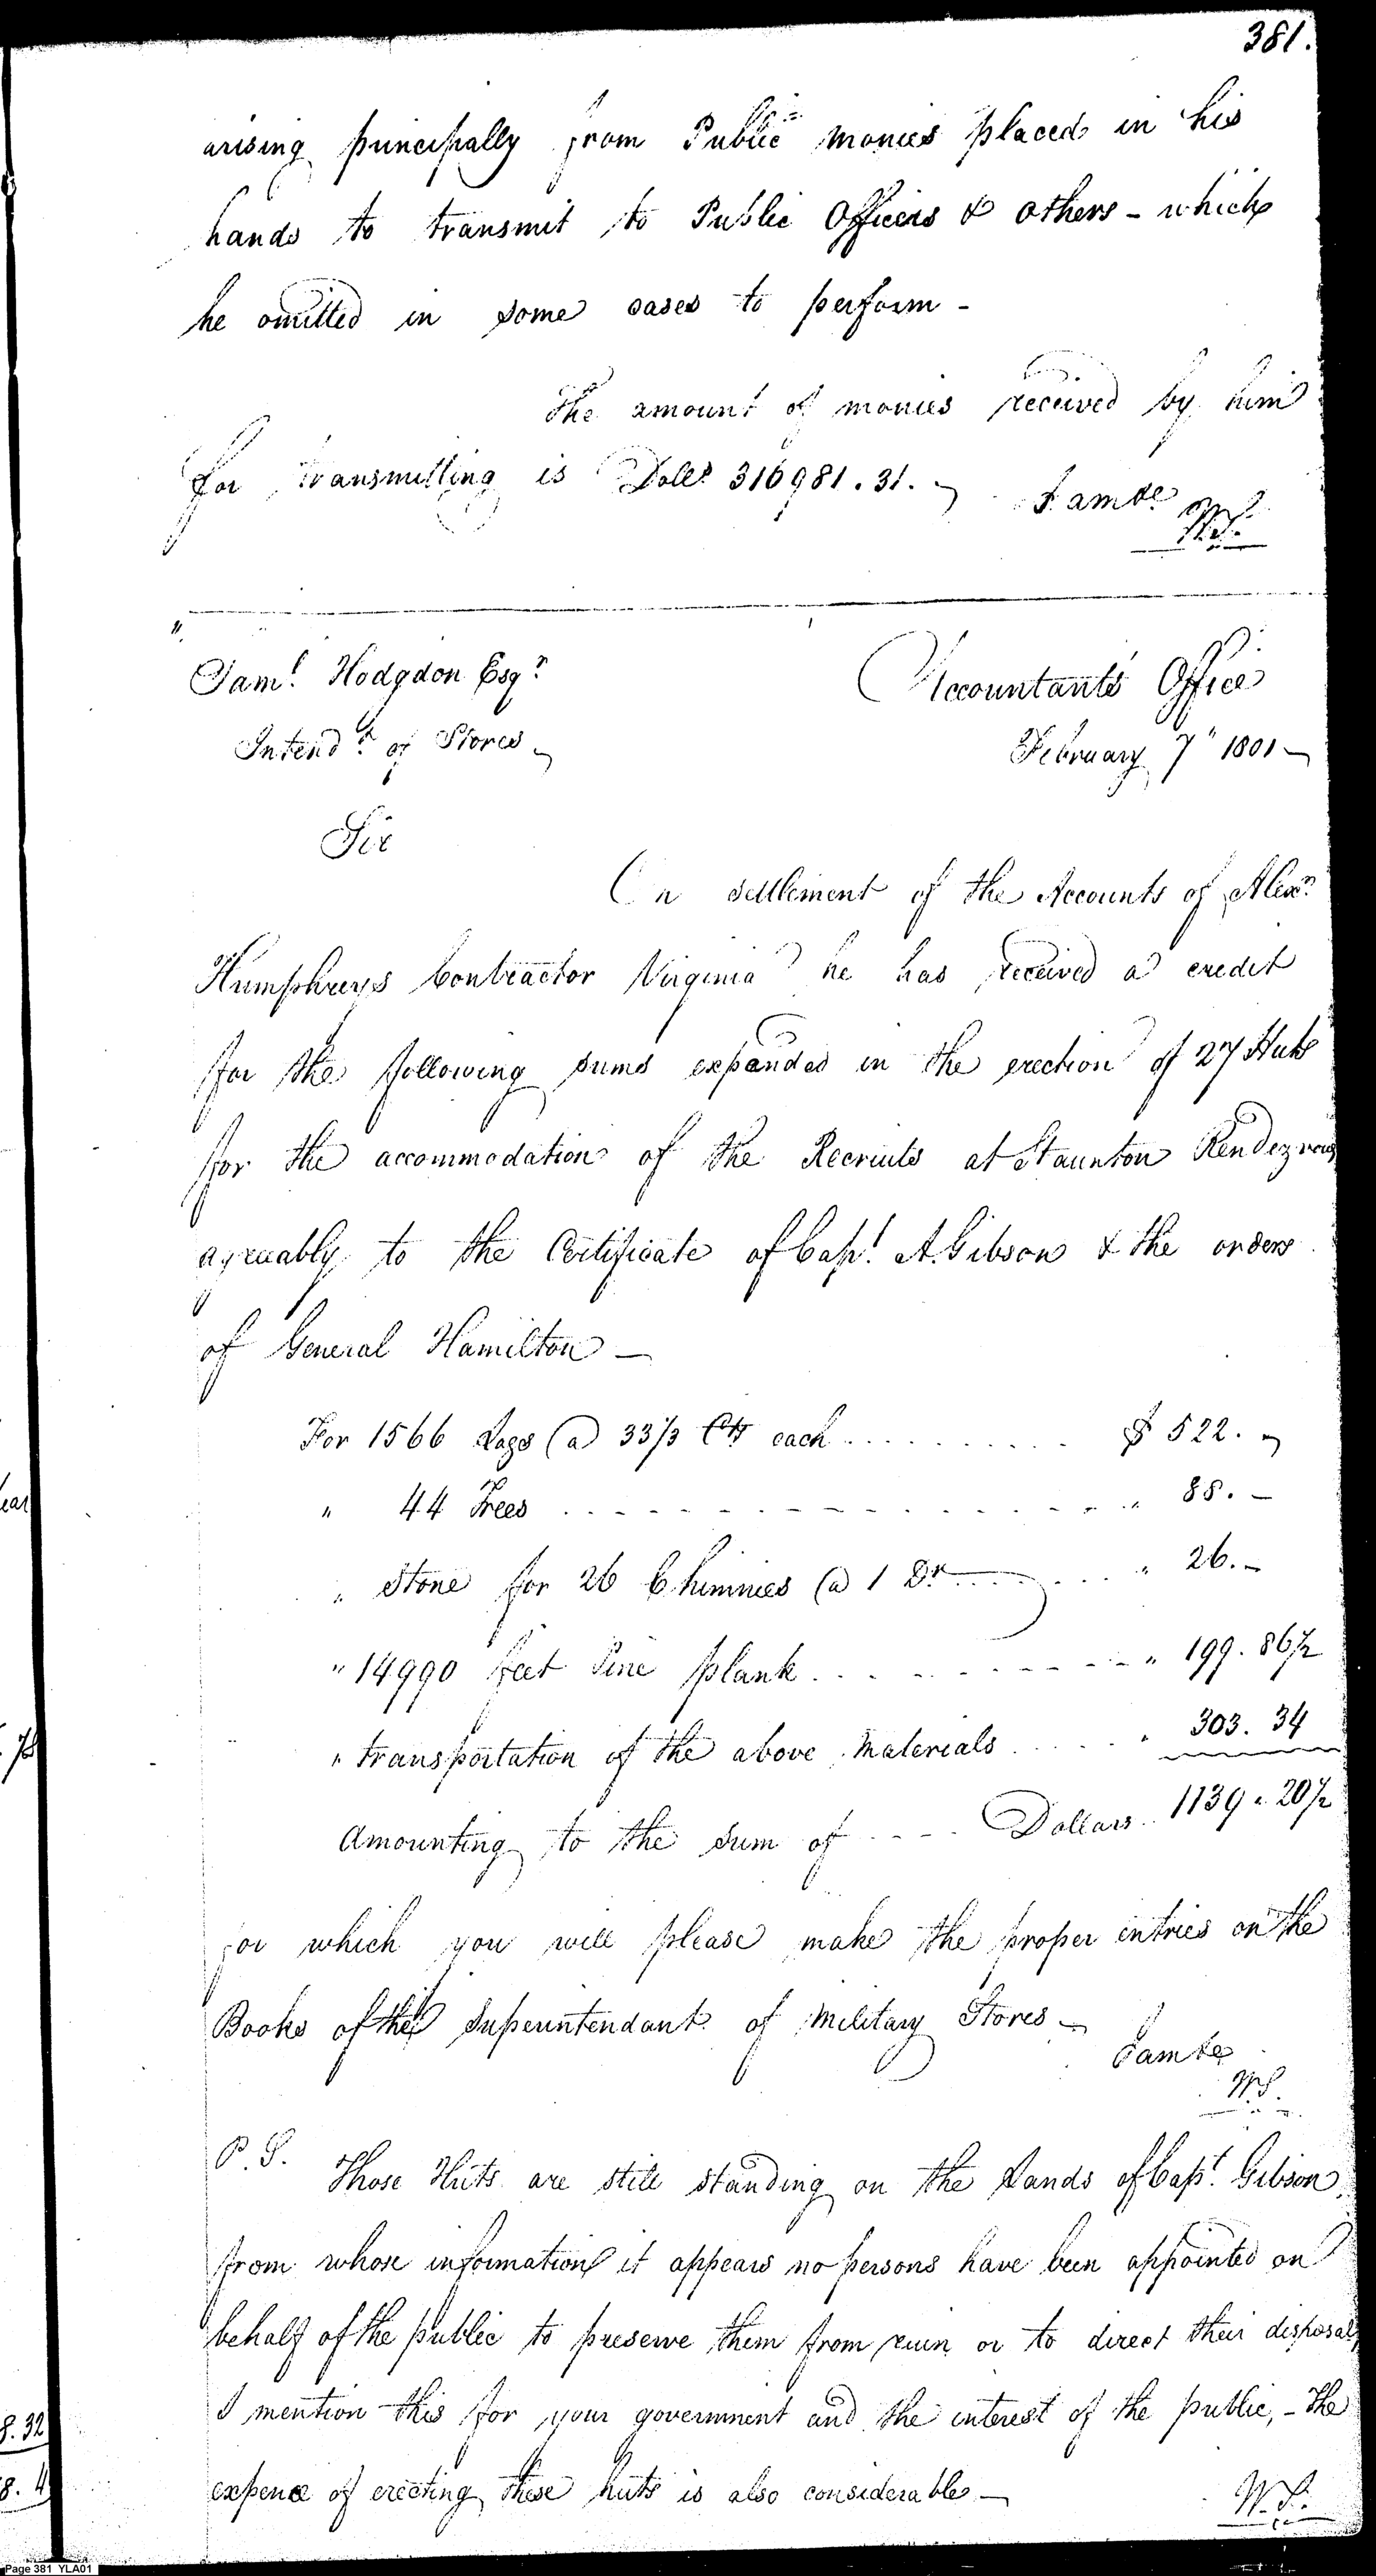 381.
arising principally from Public monies placed in his
hands to transmit to Public Officers & others - which
he omitted in some cases to perform -
The amount of monies received by him
for transmitting is Dolls 316981.31. I am &c
W.S.
Saml. Hodgdon Esqr.
Accountants Office
Intendt. of Stores
February 7" 1801
Sir
On settlement of the Accounts of Alexr.
Humphreys Contractor Virginia he has received a credit
for the following sums expanded in the erection of 27 Huts
for the accommodation of the Recruits at Staunton Rendezvous
agreeably to the Certificate of Capt. A. Gibson & the orders
of General Hamilton -
For 1566 Logs @ 33 1/3 Cts each .......... $ 522. -
" 44 Trees .......... " 88. -
" Stone for 26 Chimnies @ 1 Dr. ...... " 26. -
" 14990 feet Pine plank .......... " 199. 86 1/2
" transportation of the above Materials ..... " 303. 34
Amounting to the sum of ---- Dollars 1139. 20 1/2
for which you will please make the proper entries on the
Books of the Superintendant of Military Stores -
I am &c
W.S.
P.S. Those Huts are still standing on the Lands of Capt. Gibson
from whose information it appears no persons have been appointed on
behalf of the public to preserve them from ruin or to direct their disposal,
I mention this for your government and the interest of the public, - The
expence of erecting these huts is also considerable -
W.S.
8.32
8.4
Page 381 YLA01